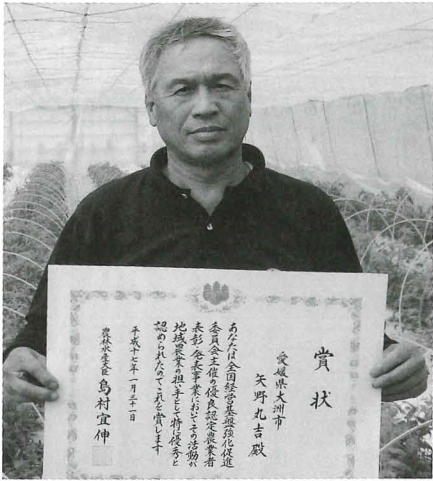 賞状
愛媛県大洲市
矢野丸吉殿
あなたは全国経営基盤強化促進
委員会主催の優良認定農業者
表彰・発表事業においてその活動が
地域農業の担い手として特に優秀と
認められたのでこれを賞します
平成十七年一月三十一日
農林水産大臣 島村宜伸